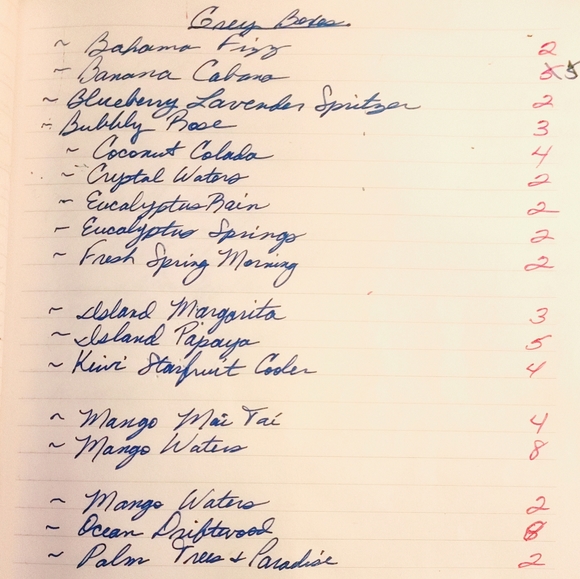 Grey Boxes.
~ Bahama Fizz 2
~ Banana Cabana 5
~ Blueberry Lavender Spritzer 2
~ Bubbly Rose 3
~ Coconut Colada 4
~ Crystal Waters 2
~ Eucalyptus Rain 2
~ Eucalyptus Springs 2
~ Fresh Spring Morning 2
~ Island Margarita 3
~ Island Papaya 5
~ Kiwi Starfruit Cooler 4
~ Mango Mai Tai 4
~ Mango Waters 8
~ Mango Waters 2
~ Ocean Driftwood
~ Palm Trees & Paradise 2